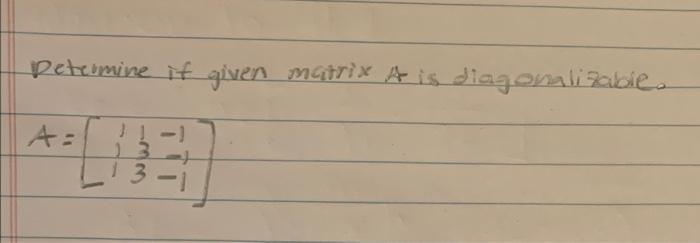 Determine if given matrix A is diagonalizable.
A = [ 1 1 -1
1 3 -1
1 3 -1 ]